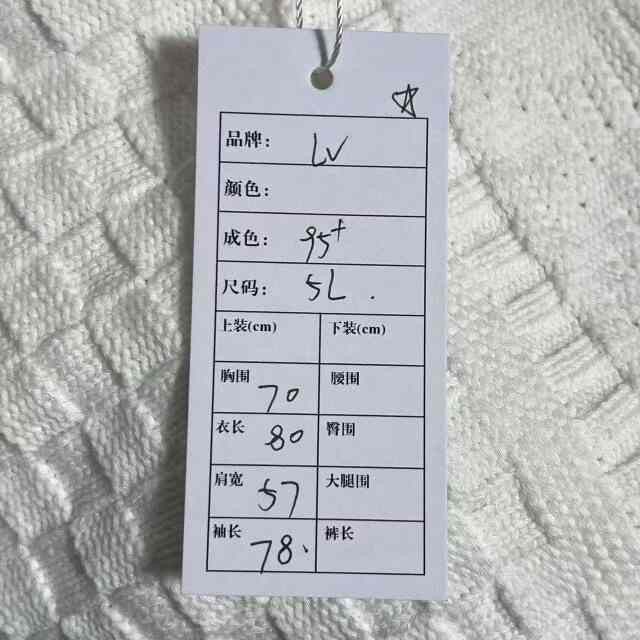 品牌: LV
颜色:
成色: 95+
尺码: 5L.
上装(cm) 下装(cm)
胸围 70 腰围
衣长 80 臀围
肩宽 57 大腿围
袖长 78. 裤长